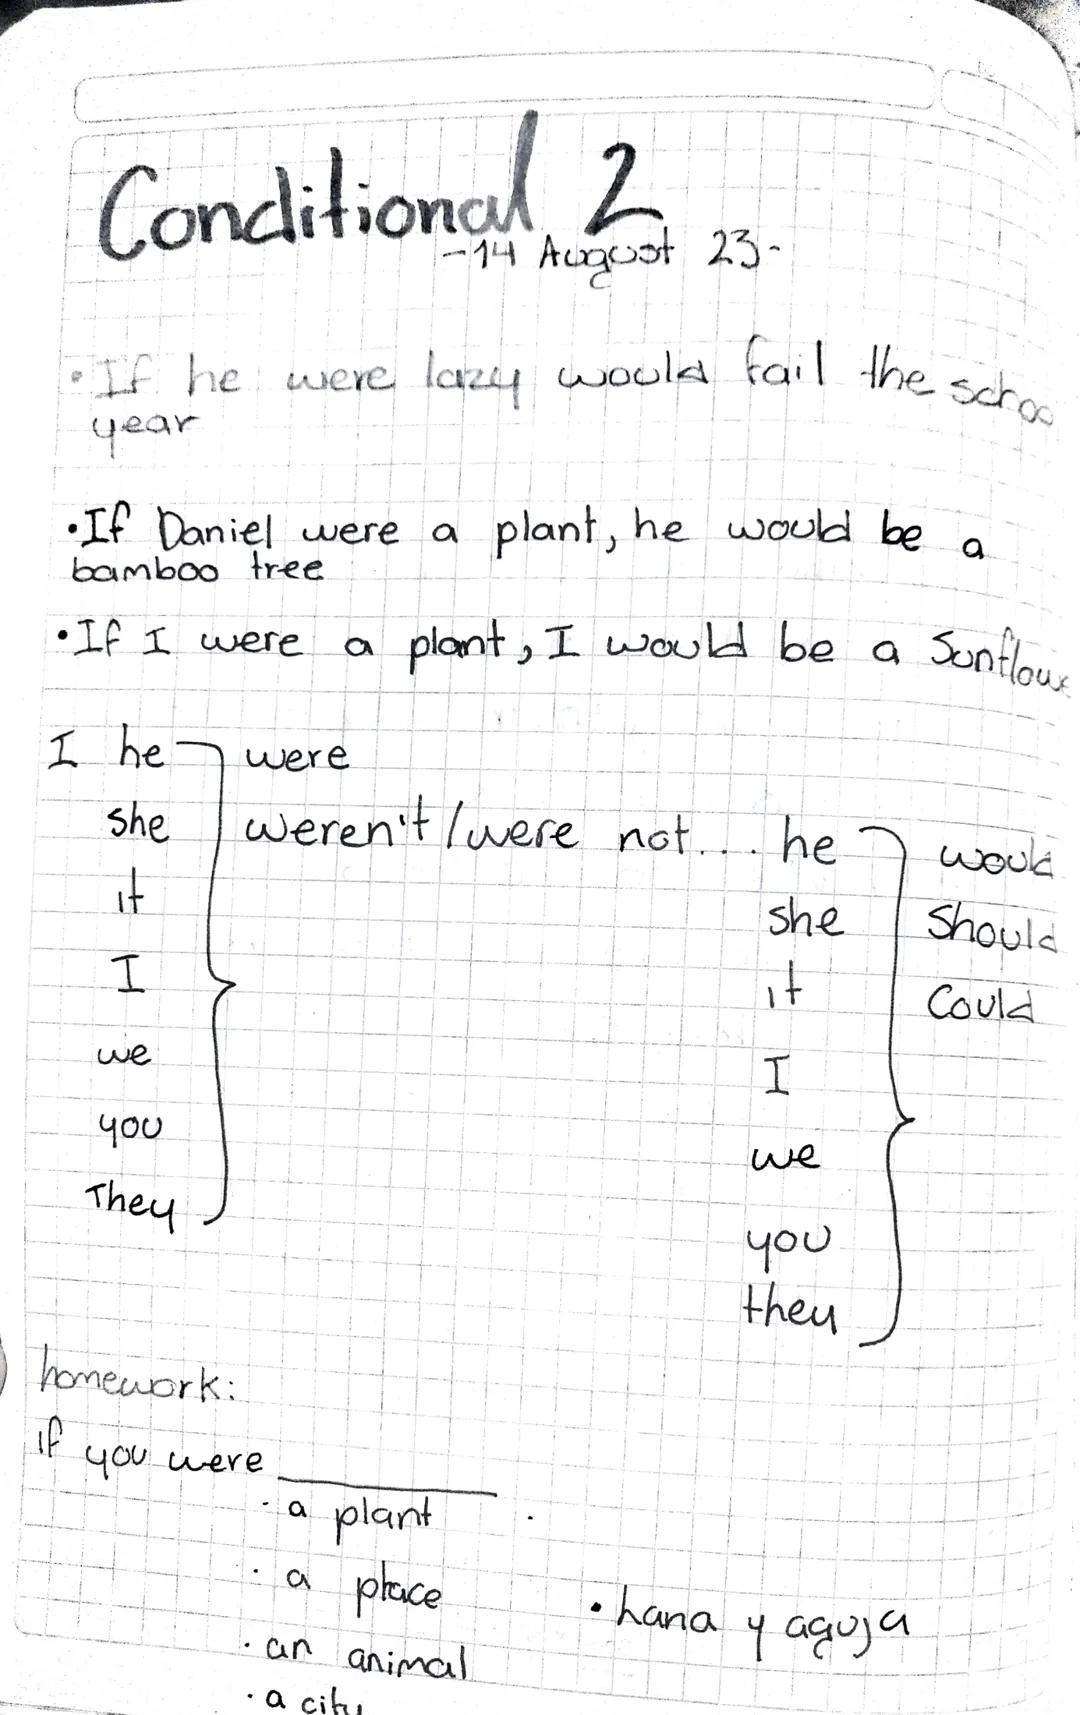 Conditional 2
-14 August 23-
• If he were lazy would fail the schoo
year
• If Daniel were a plant, he would be a
bamboo tree
• If I were a plant, I would be a Sunflowe
I he were
she weren't / were not... he would
it she should
I it could
we I
you we
They you
they
homework:
if you were ________
· a plant
· a place
· an animal
· a city
• hana y aguja